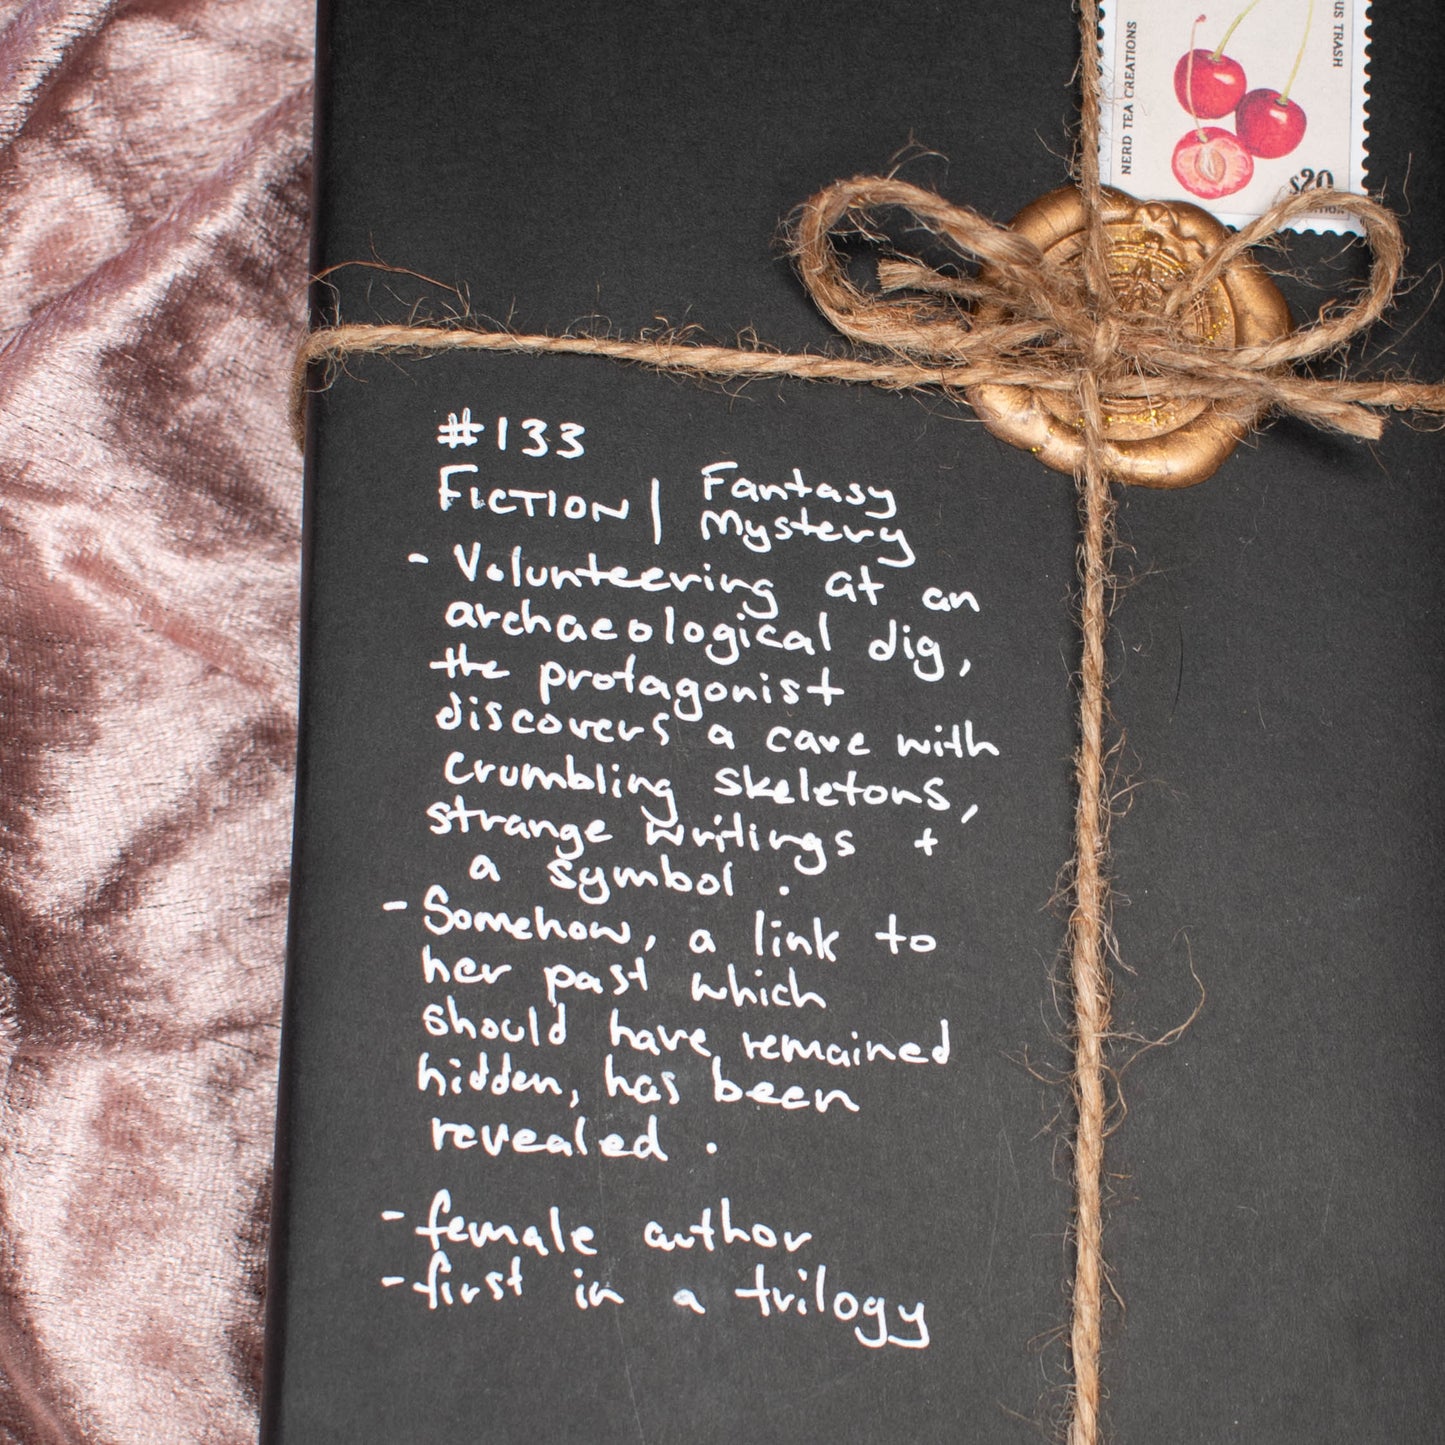 NERD TEA CREATIONS
US TRASH
$20
#133
FICTION | Fantasy
Mystery
- Volunteering at an
archaeological dig,
the protagonist
discovers a cave with
crumbling skeletons,
strange writings +
a symbol.
- Somehow, a link to
her past which
should have remained
hidden, has been
revealed.
- female author
- first in a trilogy